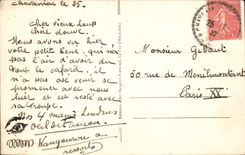 Chavaniac le 25.
Cher vieux loup
chère douce
Nous avons vu hier
votre petit René, qui n'a
pas l'air d'avoir du
tout le cafard. il
n'a pas osé venir se
promener avec nous
hier et est resté avec
sa troupe.
Nos 4 mains tendres
Oeil de faucon
Kangourou a
ressorts
Monsieur Gibaut
50 rue de Ménilmontant
Paris XX